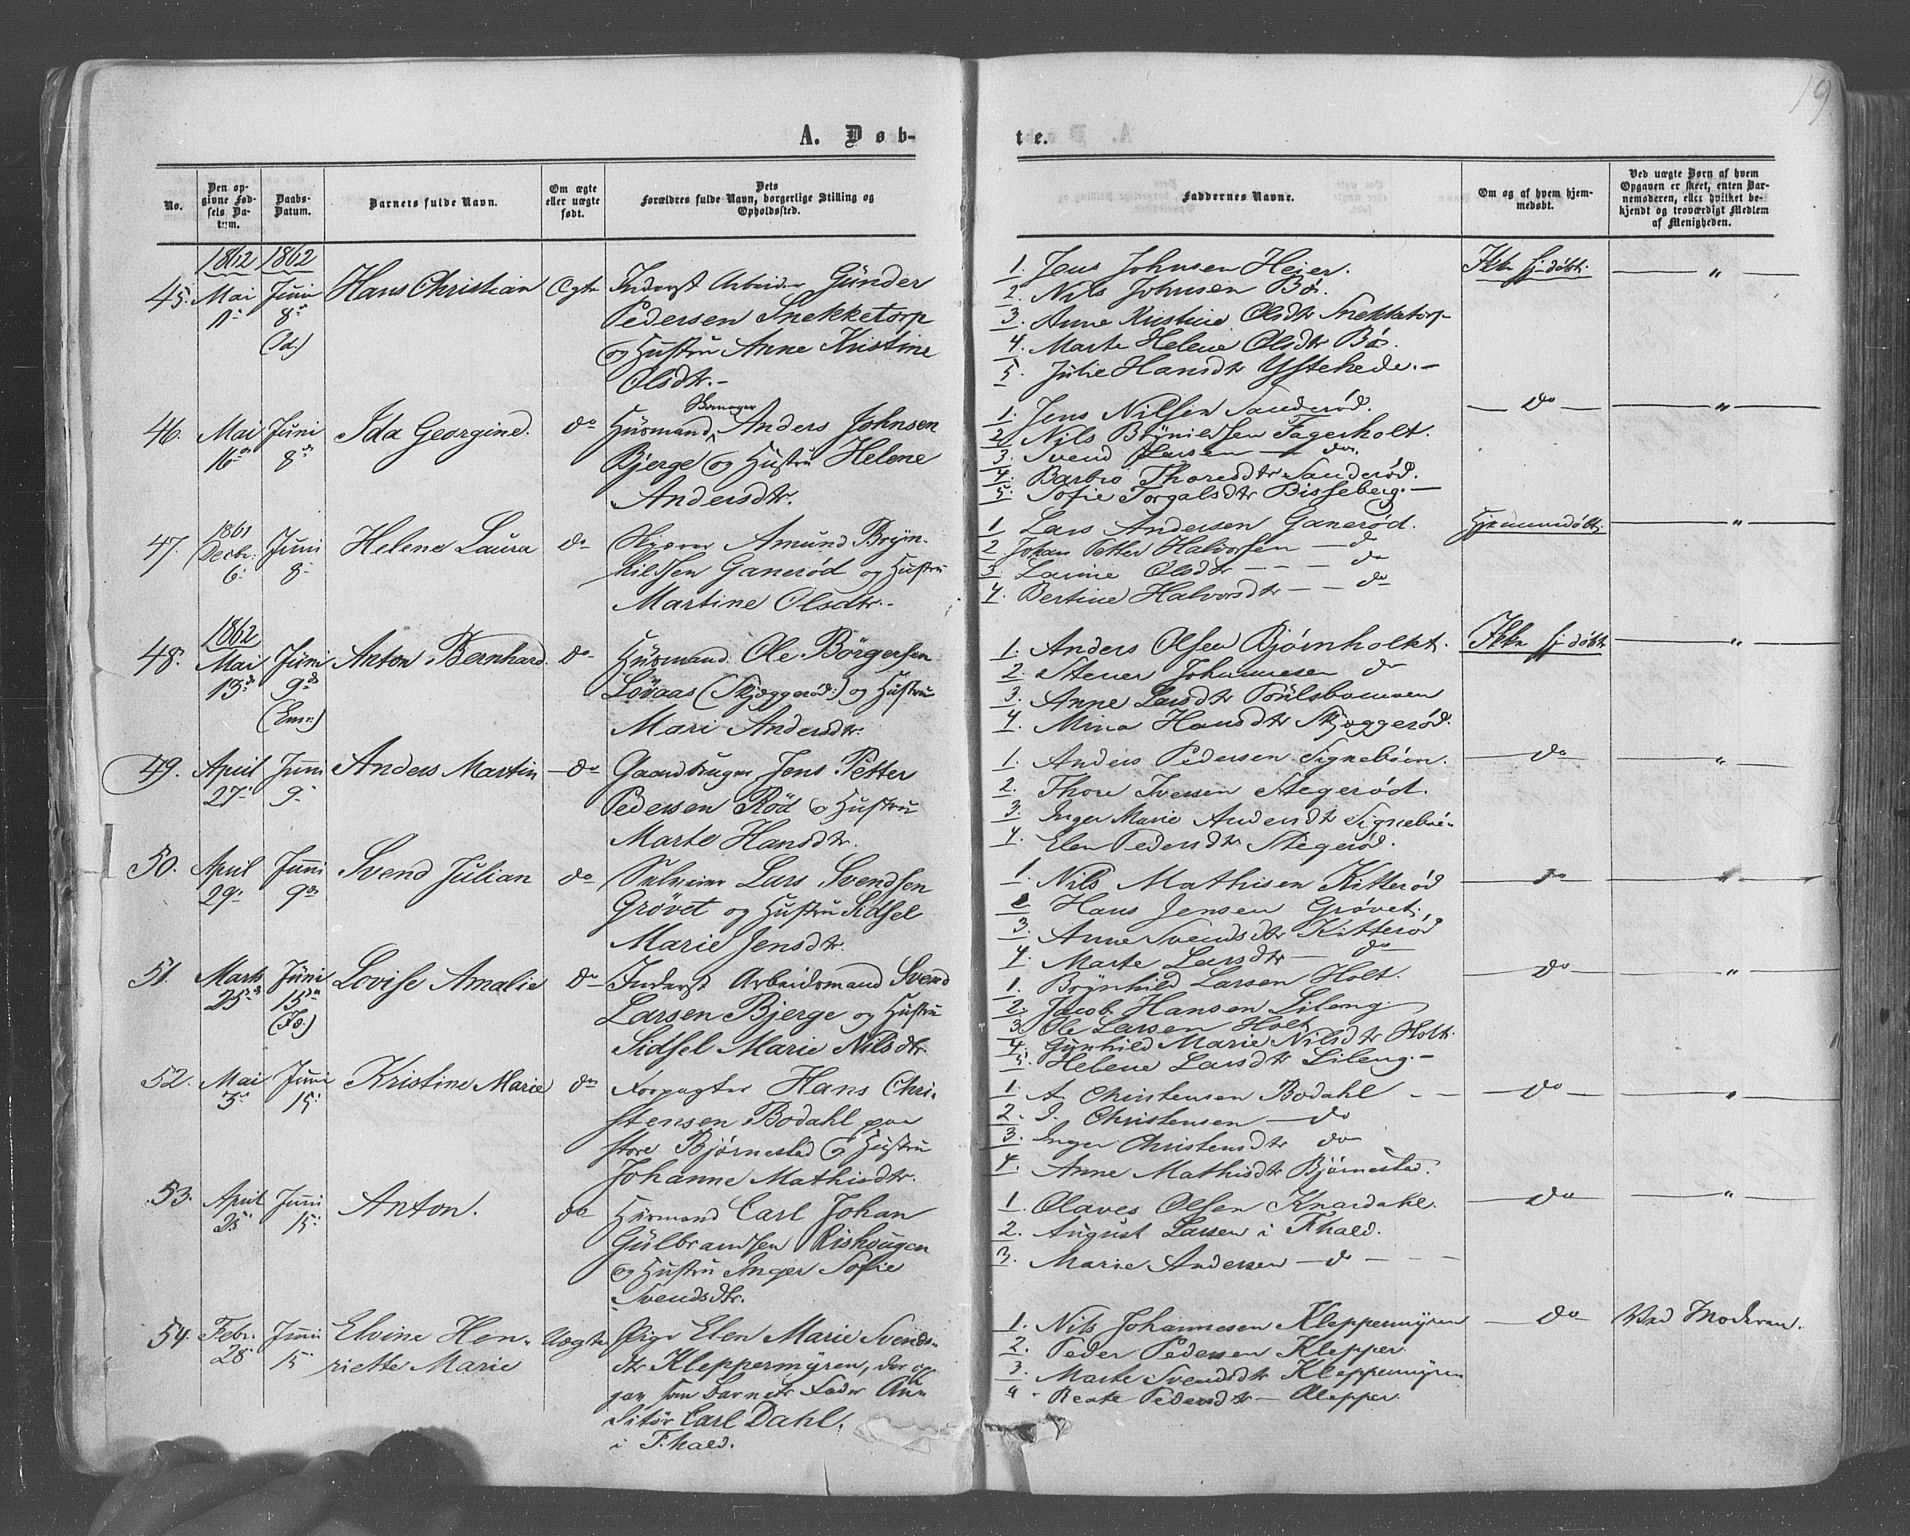 19
A. Døb-
te.
No.
Den opgivne Fødsels Datum.
Daabs-Datum.
Barnets fulde Navn.
Om ægte eller uægte født.
Dets Forældres fulde Navn, borgerlige Stilling og Opholdssted.
Faddernes Navne.
Om og af hvem hjemmedøbt.
Ved uægte Børn af hvem Opgaven er skeet, enten Barnemoderen, eller hvilket bekjendt og troværdigt Medlem af Menigheden.
1862 1862
45. Mai Juni Hans Christian Ægte Inderst Arbeider Günder
11 8
Pedersen Snekketorp
og Hustru Anne Kristine
Olsdtr.
1. Jens Johnsen Heier. Ikke hj-døbt "
2. Nils Johnsen Bø.
3. Anne Kristine Olsdtr Snekketorp
4. Marte Helene Olsdtr Bø.
5. Julie Hansdtr Ystehede.
46. Mai Juni Ida Georgine. do Husmand Anders Johnsen
16 8 Bjerge og Hustru Helene
Andersdtr.
1. Jens Nilsen Sanderød. do "
2. Nils Brynildsen Fagerholt.
3. Svend Larsen do
4. Barbro Thoresdtr Sanderød.
5. Sofie Torgalsdtr Bisseberg.
1861
47. Decbr. Juni Helene Laura do Amund Bryn-
6 8 hildsen Ganerød og Hustru
Martine Olsdtr.
1. Lars Andersen Ganerød. Hjemmedøbt "
2. Johan Petter Halvorsen do
3. Larine Olsdtr do
4. Bertine Halvorsdtr do
1862
48. Mai Juni Anton Bernhard. do Husmand Ole Börgersen
13 9 Lövaas (Skjøggerød) og Hustru
Mari Andersdtr.
1. Anders Olsen Bjørnholkt. Ikke hj-døbt "
2. Stener Johannesen do
3. Anne Larsdtr
4. Mina Hansdtr Skjøggerød.
49. April Juni Anders Martin do Gaardbruger Jens Petter
27 9 Pedersen Rød og Hustru
Marte Hansdtr.
1. Anders Pedersen Signebøen. do "
2. Thore Iversen Stegerød.
3. Inger Marie Andersdtr Signebø-
4. Elen Pedersdtr Stegerød.
50. April Juni Svend Julian do Selveier Lars Svendsen
29 9 Grøvet og Hustru Sidsel
Marie Jensdtr.
1. Nils Mathisen Kitterød do "
2. Hans Jensen Grøvet.
3. Anne Svendsdtr Kitterød
4. Marte Larsdtr do
51. Marts Juni Lovise Amalie do Inderst Arbeidsmand Svend
25 15 Larsen Bjerge og Hustru
Sidsel Marie Nilsdtr.
1. Brynhild Larsen Holt. do "
2. Jacob Hansen Lileng.
3. Ole Larsen Holt
4. Gunhild Marie Nilsdtr Holt.
5. Helene Larsdtr Lileng.
52. Mai Juni Kristine Marie do Forpagter Hans Chri-
3 15 stensen Bodahl paa
store Bjørnestad og Hustru
Johanne Mathisdtr.
1. A. Christensen Bodahl do "
2. J. Christensen do
3. Inger Christensdtr do
4. Anne Mathisdtr Bjørnestad.
53. April Juni Anton. do Husmand Carl Johan
25 15 Gülbrandsen Rishaugen
og Hustru Inger Sofie
Svendsdtr.
1. Olaves Olsen Knardahl. do "
2. August Larsen i Fhald.
3. Marie Andersen do
54. Febr. Juni Elvine Hen- Uægte Pige Elen Marie Svends-
28 15 riette Marie dtr Kleppermyren, der op-
gav som Barnets Fader
Carl Dahl.
i F.hald.
1. Nils Johannesen Kleppermyren do Ved Moderen.
2. Peder Pedersen Klepper.
3. Marte Svendsdtr Kleppermyren
4. Beate Pedersdtr Klepper.